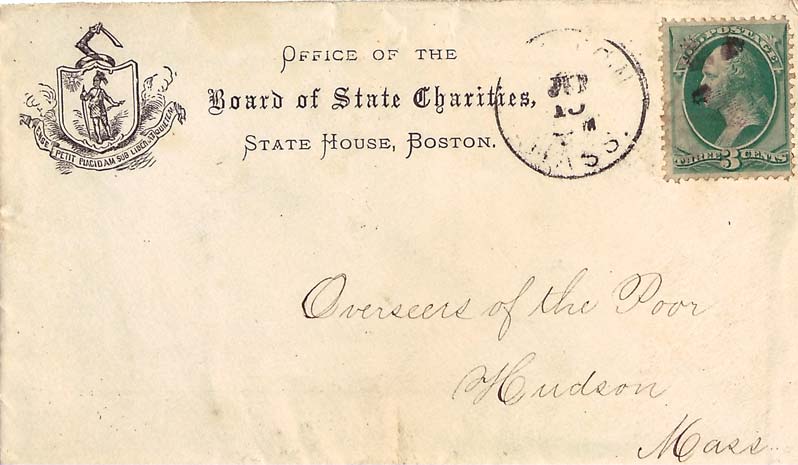 OFFICE OF THE
Board of State Charities,
STATE HOUSE, BOSTON.
ENSE PETIT PLACIDAM SUB LIBERTATE QUIETEM
MASS.
U.S. POSTAGE
THREE 3 CENTS
Overseers of the Poor
Hudson
Mass